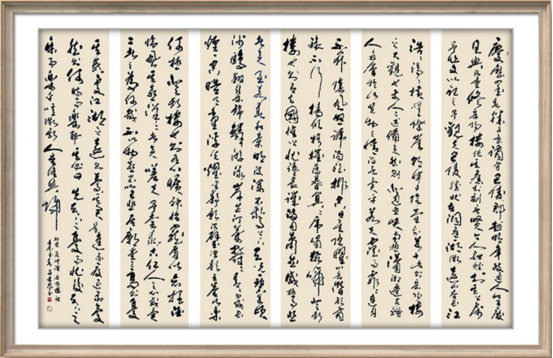 慶歷四年春滕子京謫守巴陵郡越明年政通人和百廢
具興乃重修岳陽樓增其舊制刻唐賢今人詩賦於其上屬
予作文以記之予觀夫巴陵勝狀在洞庭一湖銜遠山吞長江
浩浩湯湯橫無際涯朝暉夕陰氣象萬千此則岳陽樓
之大觀也前人之述備矣然則北通巫峽南極瀟湘遷客騷
人多會於此覽物之情得無異乎若夫霪雨霏霏連月
不開陰風怒號濁浪排空日星隱曜山岳潛形商
旅不行檣傾楫摧薄暮冥冥虎嘯猿啼登斯
樓也則有去國懷鄉憂讒畏譏滿目蕭然感極而悲
者矣至若春和景明波瀾不驚上下天光一碧萬頃
沙鷗翔集錦鱗游泳岸芷汀蘭郁郁青青而或長
煙一空皓月千里浮光耀金靜影沉璧漁歌互答此樂
何極登斯樓也則有心曠神怡寵辱偕忘把酒
臨風其喜洋洋者矣嗟夫予嘗求古仁人之心或異
二者之為何哉不以物喜不以己悲居廟堂之高則憂
其民處江湖之遠則憂其君是進亦憂退亦憂
然則何時而樂耶其必曰先天下之憂而憂後天下之
樂而樂乎噫微斯人吾誰與歸